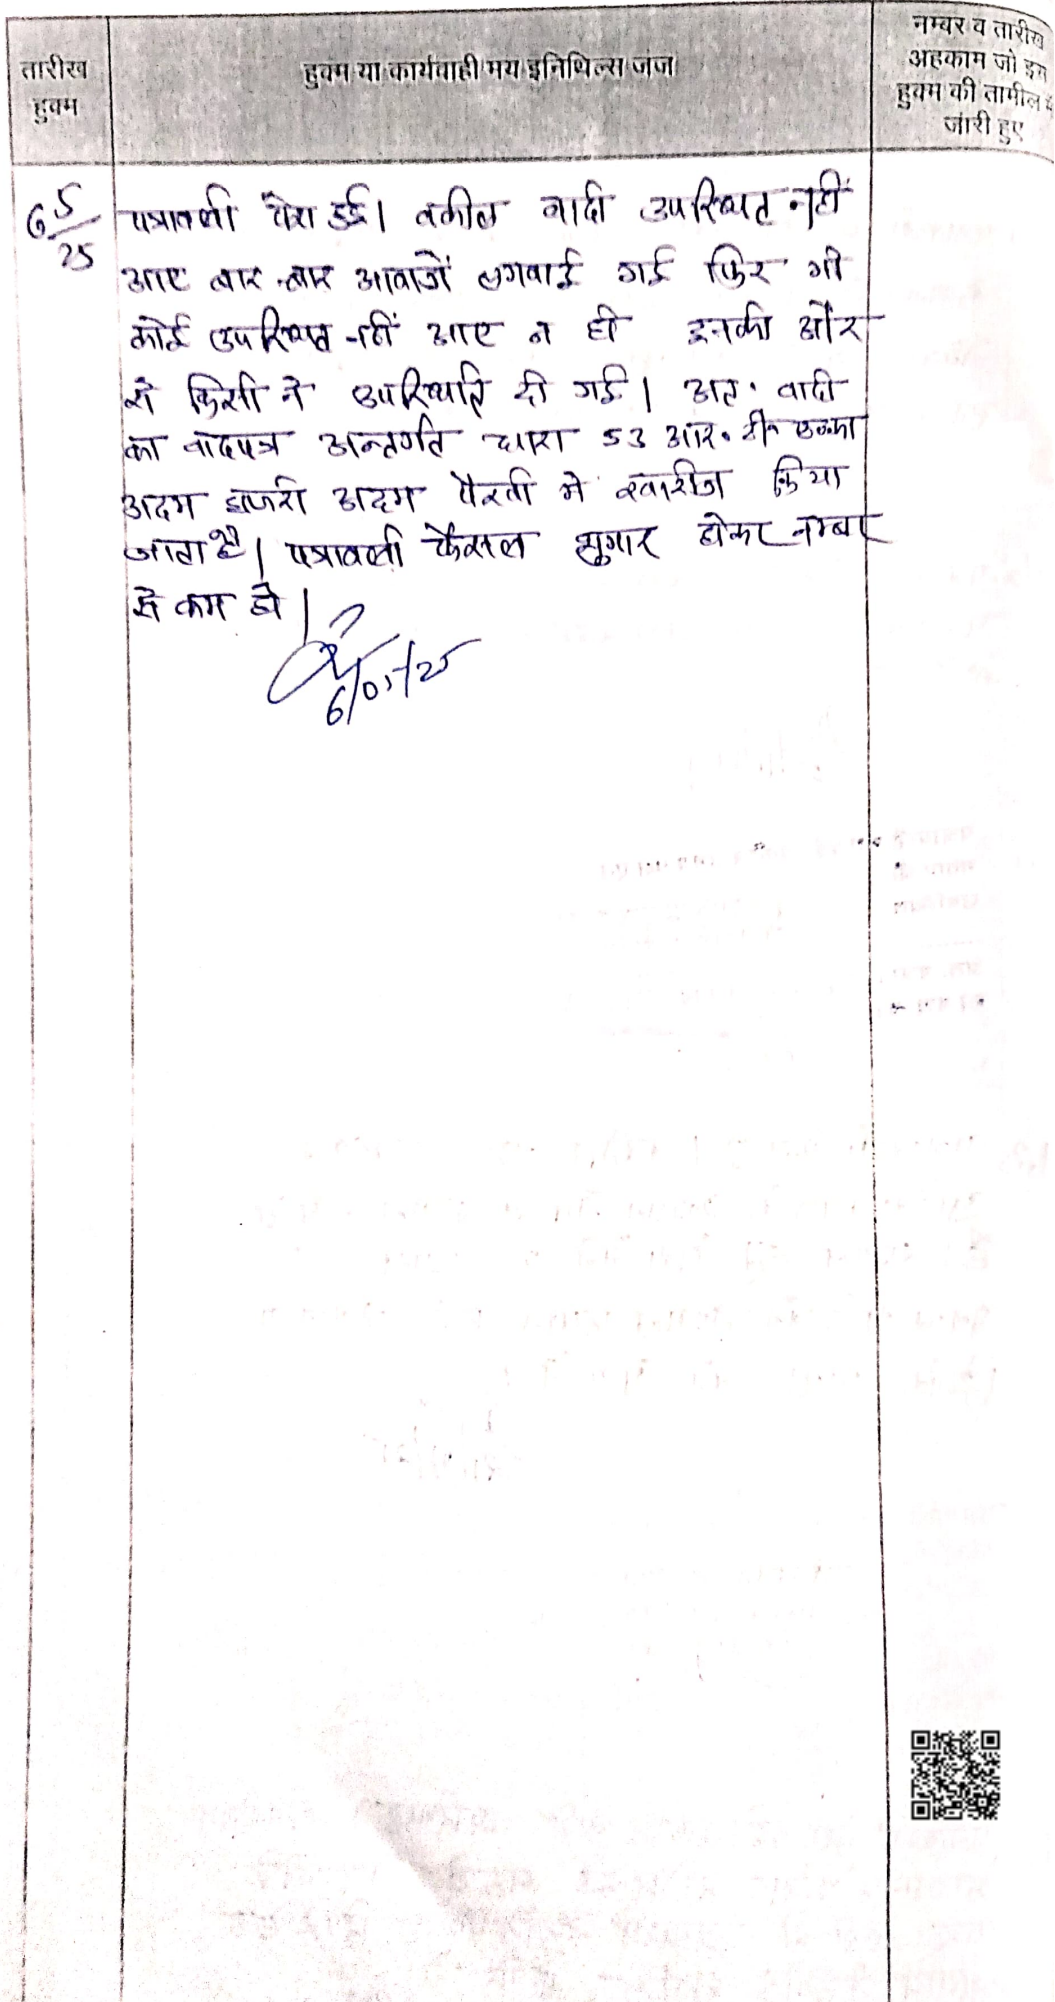 तारीख
हुक्म
हुक्म या कार्यवाही मय इनिथिल्स जंज
नम्बर व तारीख
अहकाम जो इस
हुक्म की तामील में
जारी हुए
6/5/25
पत्रावली पेश हुई। वकील वादी उपस्थित नहीं
आए बार-बार आवाजें लगवाई गई फिर भी
कोई उपस्थित नहीं आए न ही इनकी और
से किसी ने उपस्थिति दी गई। अतः वादी
का वादपत्र अन्तर्गत धारा 53 आर.टी. एक्ट
अदम हाजरी अदम पैरवी मे खारीज किया
जाता है। पत्रावली फैसल सुमार होकर नम्बर
से कम हो।
6/05/25